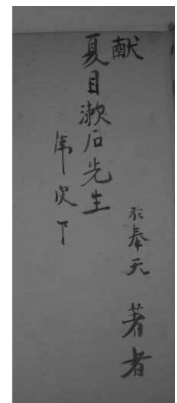 献
夏目漱石先生
虎皮下
於奉天 著者